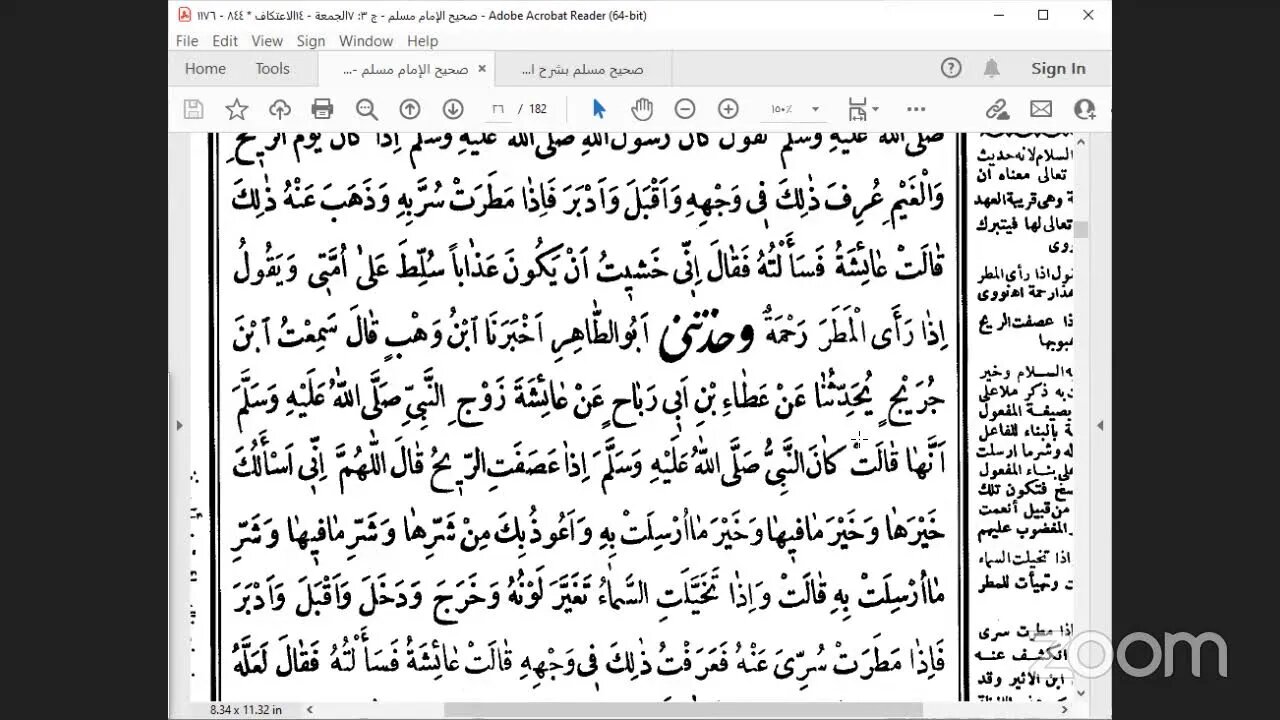 صحيح الإمام مسلم - ج ٣: ٧الجمعة - ١٤الاعتكاف * ٨٤٤ - ١١٧٦ - Adobe Acrobat Reader (64-bit)
File Edit View Sign Window Help
Home Tools صحيح الإمام مسلم -... صحيح مسلم بشرح ا... Sign In
٢٦ / 182 ١٥٠٪
صَلَّى اللهُ عَلَيْهِ وَسَلَّمَ تَقُولُ كَانَ رَسُولُ اللهِ صَلَّى اللهُ عَلَيْهِ وَسَلَّمَ اِذَا كَانَ يَوْمُ الرّيحِ
وَالْغَيْمِ عُرِفَ ذٰلِكَ فِى وَجْهِهِ وَاَقْبَلَ وَاَدْبَرَ فَاِذٰا مَطَرَتْ سُرَّبِهِ وَذَهَبَ عَنْهُ ذٰلِكَ
قٰالَتْ عٰائِشَةُ فَسَأَلْتُهُ فَقٰالَ اِنّى خَشِيتُ اَنْ يَكُونَ عَذٰاباً سُلِّطَ عَلىٰ اُمَّتى وَيَقُولُ
اِذٰا رَأَى الْمَطَرَ رَحْمَةٌ وحدثنى اَبُوالطّٰاهِرِ اَخْبَرَنَا ابْنُ وَهْبٍ قٰالَ سَمِعْتُ ابْنَ
جُرَيْجٍ يُحَدِّثُنٰا عَنْ عَطٰاءِ بْنِ اَبِى رَبٰاحٍ عَنْ عٰائِشَةَ زَوْجِ النَّبِىِّ صَلَّى اللهُ عَلَيْهِ وَسَلَّمَ
اَنَّهٰا قٰالَتْ كٰانَ النَّبِىُّ صَلَّى اللهُ عَلَيْهِ وَسَلَّمَ اِذٰا عَصَفَتِ الرّيحُ قٰالَ اللّٰهُمَّ اِنّى اَسْأَلُكَ
خَيْرَهٰا وَخَيْرَ مٰافيهٰا وَخَيْرَ مٰااُرْسِلَتْ بِهِ وَاَعُوذُ بِكَ مِنْ شَرِّهٰا وَشَرِّ مٰافيهٰا وَشَرِّ
مٰااُرْسِلَتْ بِهِ قٰالَتْ وَاِذٰا تَخَيَّلَتِ السَّمٰاءُ تَغَيَّرَ لَوْنُهُ وَخَرَجَ وَدَخَلَ وَاَقْبَلَ وَاَدْبَرَ
فَاِذٰا مَطَرَتْ سُرِّىَ عَنْهُ فَعَرَفْتُ ذٰلِكَ فِى وَجْهِهِ قٰالَتْ عٰائِشَةُ فَسَأَلْتُهُ فَقٰالَ لَعَلَّهُ
السلام لانه حديث
تعالى معناه ان
وهى قريبة العهد
تعالى لها فيتبرك
اذا رأى المطر
رحمة اه نووى
عصفت الريح
هبوبها
السلام وخير
به ذكر ملاعلى
بصيغة المفعول
بالبناء للفاعل
وشرما ارسلت
على بناء المفعول
فتكون تلك
من قبيل أنعمت
المغضوب عليهم
اذا تخيلت السماء
وتهيأت للمطر
مطرت سرى
الكشف عنه
ابن الاثير وقد
zoom
8.34 x 11.32 in